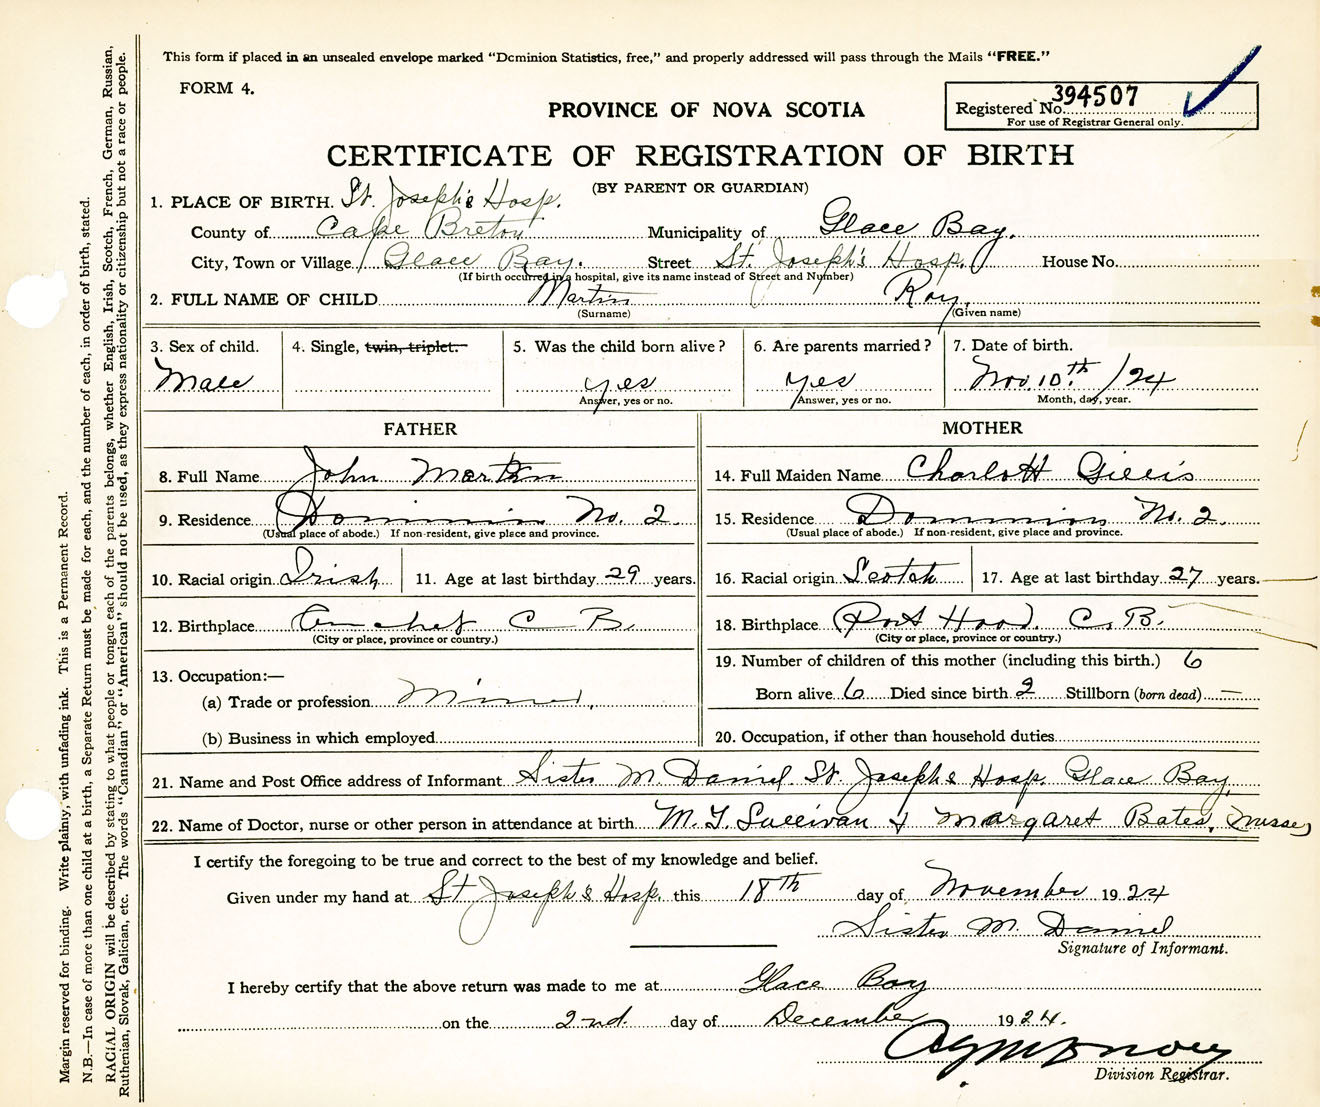 This form if placed in an unsealed envelope marked "Dominion Statistics, free," and properly addressed will pass through the Mails "FREE."
FORM 4.
PROVINCE OF NOVA SCOTIA
Registered No. 394507
For use of Registrar General only.
CERTIFICATE OF REGISTRATION OF BIRTH
(BY PARENT OR GUARDIAN)
1. PLACE OF BIRTH. St. Joseph's Hosp.
County of Cape Breton Municipality of Glace Bay.
City, Town or Village Glace Bay. Street St. Joseph's Hosp. House No.
(If birth occurred in a hospital, give its name instead of Street and Number)
2. FULL NAME OF CHILD Martin Roy.
(Surname) (Given name)
3. Sex of child. 4. Single, twin, triplet. 5. Was the child born alive? 6. Are parents married? 7. Date of birth.
Male yes yes Nov. 10th /24
Answer, yes or no. Answer, yes or no. Month, day, year.
FATHER MOTHER
8. Full Name John Martin 14. Full Maiden Name Charlott Gillis
9. Residence Dominion No. 2. 15. Residence Dominion No. 2.
(Usual place of abode.) If non-resident, give place and province. (Usual place of abode.) If non-resident, give place and province.
10. Racial origin Irish 11. Age at last birthday 29 years. 16. Racial origin Scotch 17. Age at last birthday 27 years.
12. Birthplace C B. 18. Birthplace Port Hood. C. B.
(City or place, province or country.) (City or place, province or country.)
13. Occupation:— 19. Number of children of this mother (including this birth.) 6
(a) Trade or profession Miner. Born alive 6 Died since birth 2 Stillborn (born dead) —
(b) Business in which employed 20. Occupation, if other than household duties
21. Name and Post Office address of Informant Sister M. Daniel. St. Joseph's Hosp. Glace Bay.
22. Name of Doctor, nurse or other person in attendance at birth M. T. Sullivan & Margaret Bates, Nurse
I certify the foregoing to be true and correct to the best of my knowledge and belief.
Given under my hand at St Joseph's Hosp. this 18th day of November 1924
Sister M. Daniel
Signature of Informant.
I hereby certify that the above return was made to me at Glace Bay
on the 2nd. day of December 1924.
Division Registrar.
Margin reserved for binding. Write plainly, with unfading ink. This is a Permanent Record.
N.B.—In case of more than one child at a birth, a Separate Return must be made for each, and the number of each, in order of birth, stated.
RACIAL ORIGIN will be described by stating to what people or tongue each of the parents belongs, whether English, Irish, Scotch, French, German, Russian,
Ruthenian, Slovak, Galician, etc. The words "Canadian" or "American" should not be used, as they express nationality or citizenship but not a race or people.